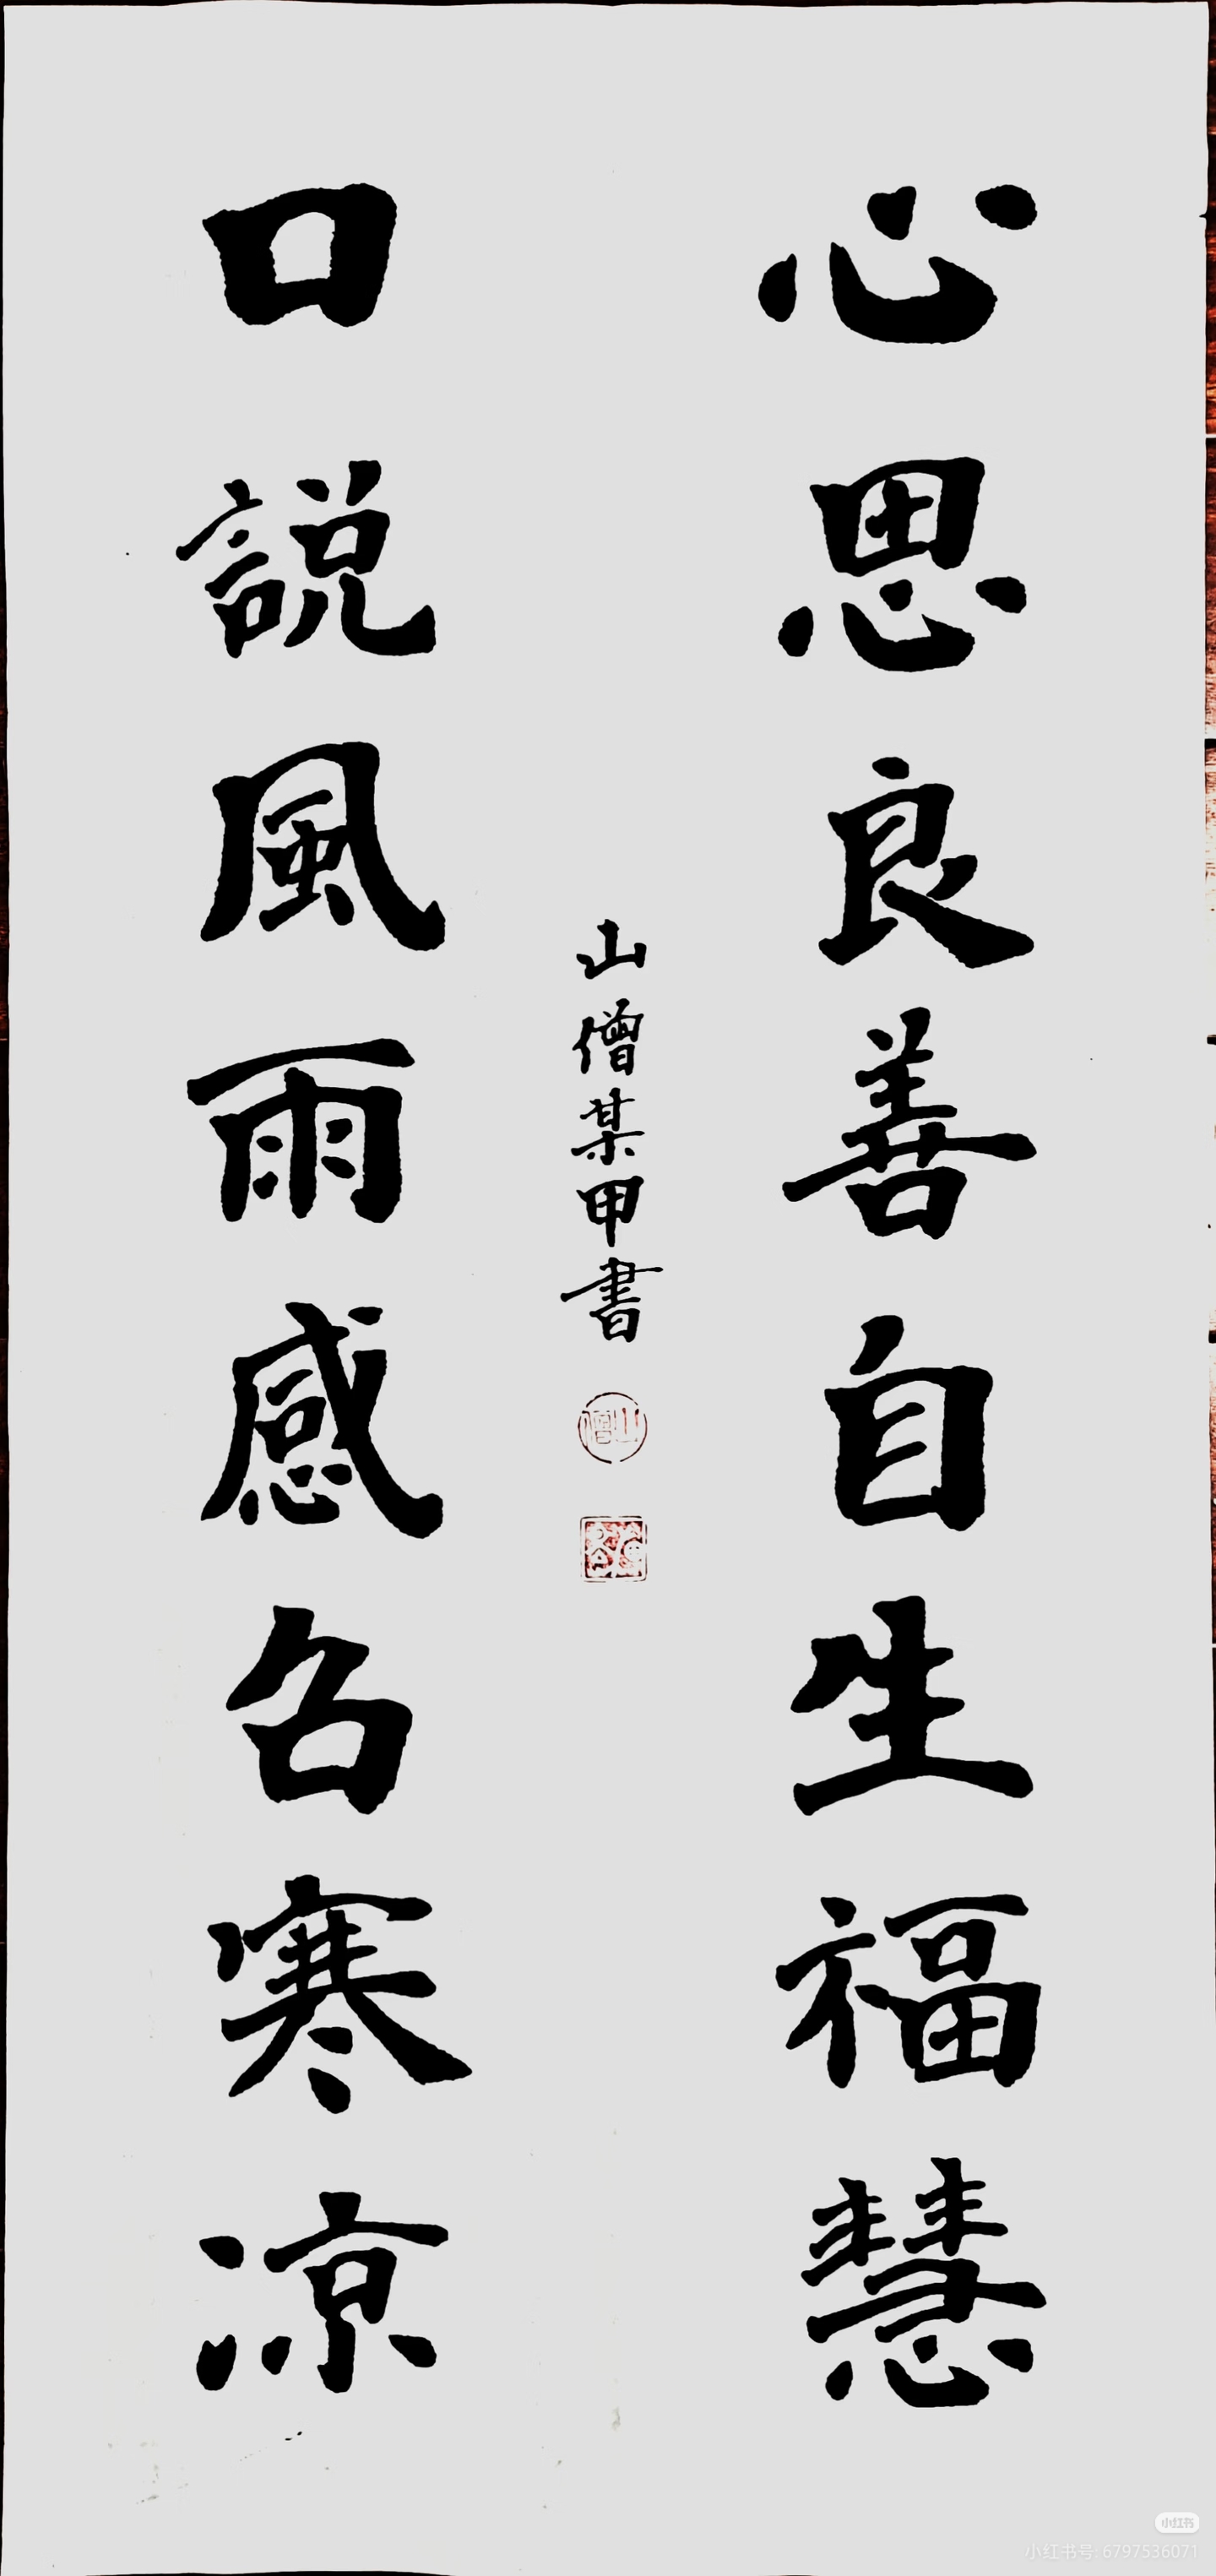 心思良善自生福慧
口說風雨感名寒凉
山僧某甲書
山僧
小红书
小红书号: 6797536071